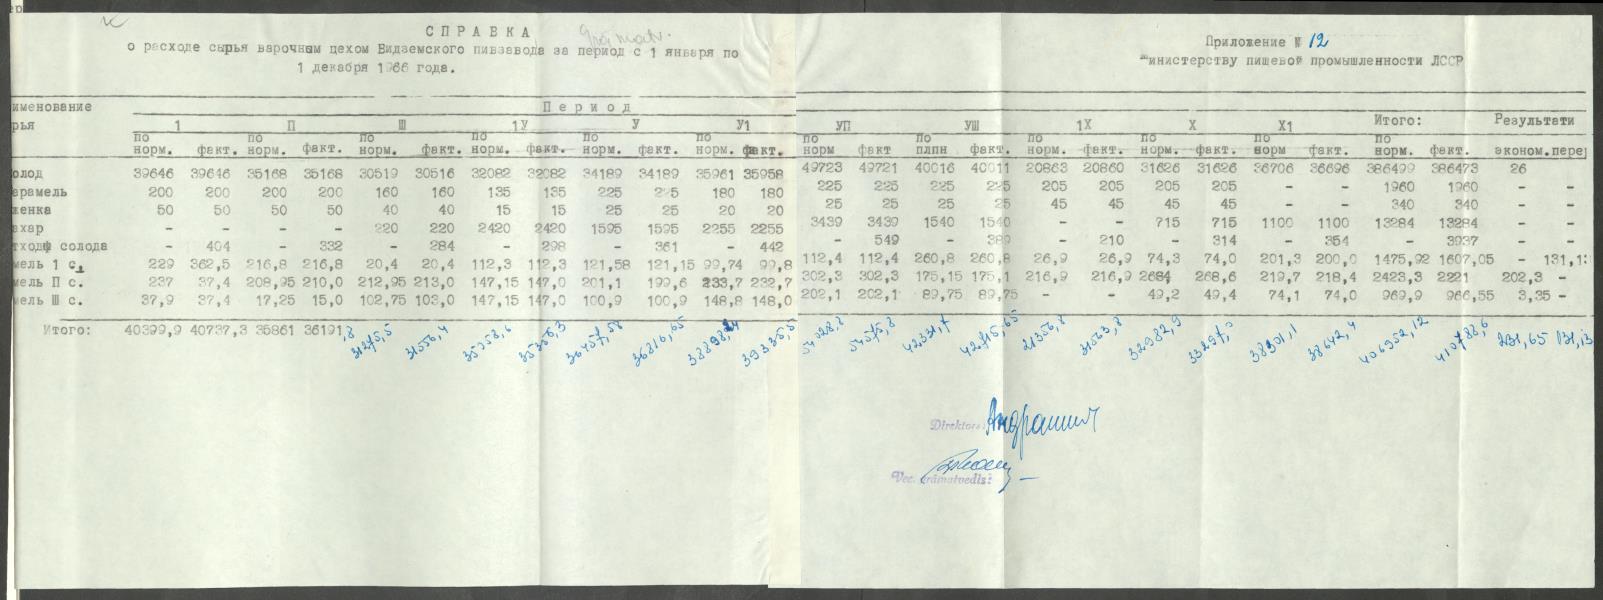 СПРАВКА
о расходе сырья варочным цехом Видземского пивзавода за период с 1 января по
1 декабря 1966 года.
Приложение № 12
министерству пишевой промышленности ЛССР
именование Период
рья 1 П Ш 1У У У1 УП УШ 1Х Х Х1 Итого: Результати
по по по по по по УП по по по по
норм. факт. норм. факт. норм. факт. норм. факт. норм. факт. норм. факт. норм факт плпн факт. норм. факт. норм. факт. норм факт. норм. факт. эконом. пере
олод 39646 39646 35168 35168 30519 30516 32082 32082 34189 34189 35961 35958 49723 49721 40016 40011 20863 20860 31626 31626 36706 36696 386499 386473 26
арамель 200 200 200 200 160 160 135 135 225 225 180 180 225 225 225 225 205 205 205 205 - - 1960 1960 - -
женка 50 50 50 50 40 40 15 15 25 25 20 20 25 25 25 25 45 45 45 45 - - 340 340 - -
ахар - - - - 220 220 2420 2420 1595 1595 2255 2255 3439 3439 1540 1540 - - 715 715 1100 1100 13284 13284 - -
тходы солода - 404 - 332 - 284 - 298 - 361 - 442 - 549 - 389 - 210 - 314 - 354 - 3937 - -
мель 1 с. 229 362,5 216,8 216,8 20,4 20,4 112,3 112,3 121,58 121,15 99,74 99,8 112,4 112,4 260,8 260,8 26,9 26,9 74,3 74,0 201,3 200,0 1475,92 1607,05 - 131,1
мель П с. 237 37,4 208,95 210,0 212,95 213,0 147,15 147,0 201,1 199,6 233,7 232,7 302,3 302,3 175,15 175,1 216,9 216,9 2684 268,6 219,7 218,4 2423,3 2221 202,3 -
мель Ш с. 37,9 37,4 17,25 15,0 102,75 103,0 147,15 147,0 100,9 100,9 148,8 148,0 202,1 202,1 89,75 89,75 - - 49,2 49,4 74,1 74,0 969,9 966,55 3,35 -
Итого: 40399,9 40737,3 35861 36191,8 31275,5 31556,4 35058,6 35356,3 36457,58 36816,65 38898,24 39335,5 54028,8 54575,8 42331,7 42715,65 21356,8 21563,8 32982,9 33297,0 38301,1 38642,4 406952,12 410788,6 231,65 131,13
Direktors:
Vec. grāmatvedis: